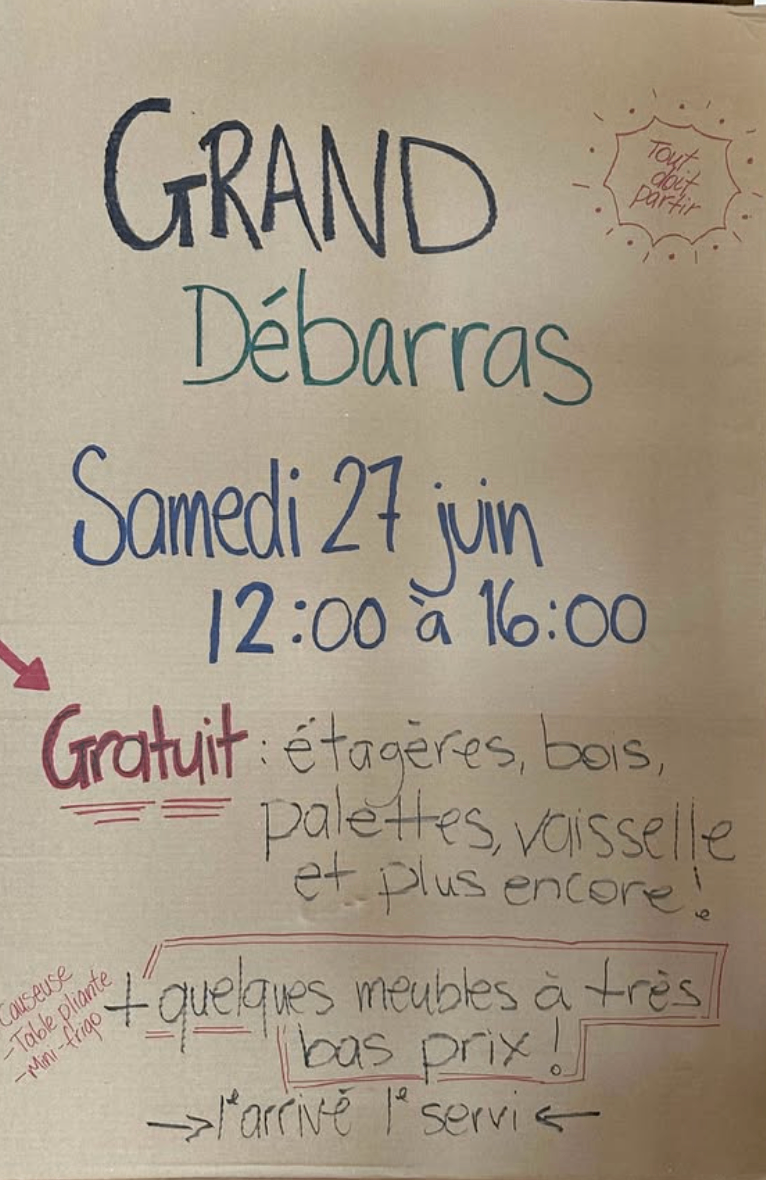 GRAND
Tout
doit
partir
Débarras
Samedi 27 juin
12:00 à 16:00
Gratuit : étagères, bois,
palettes, vaisselle
et plus encore!
+ quelques meubles à très
bas prix!
Causeuse
- Table pliante
- Mini-frigo
→ 1e arrivé 1e servi ←